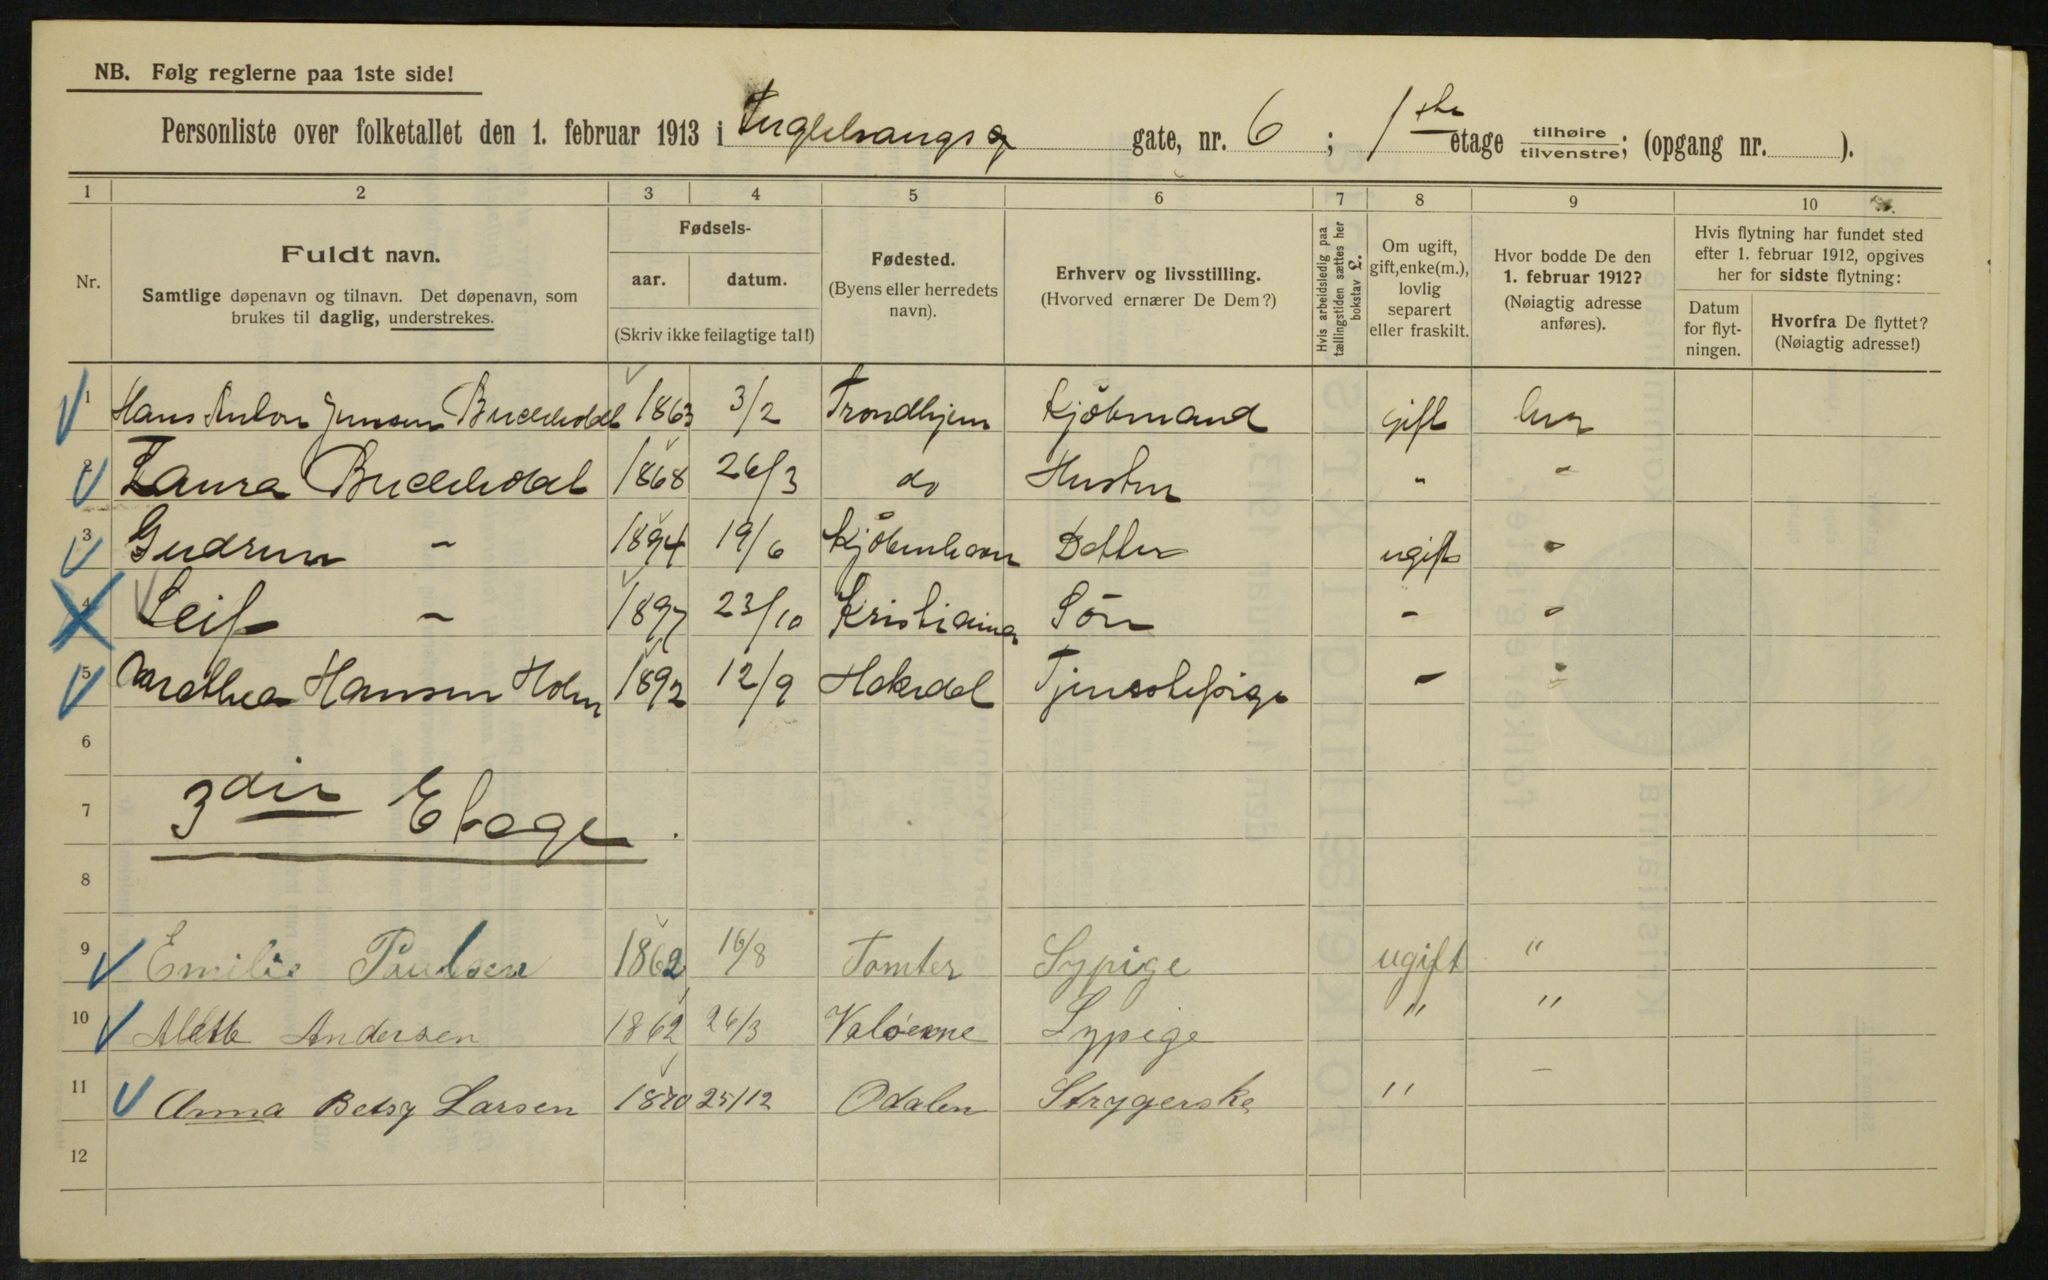 NB. Følg reglerne paa 1ste side!
Personliste over folketallet den 1. februar 1913 i Fuglehaugsg gate, nr. 6 ; 1ste etage tilhøire tilvenstre; (opgang nr. ).
1 2 3 4 5 6 7 8 9 10
Nr.
Fuldt navn.
Samtlige døpenavn og tilnavn. Det døpenavn, som
brukes til daglig, understrekes.
Fødsels-
aar. datum.
(Skriv ikke feilagtige tal!)
Fødested.
(Byens eller herredets
navn).
Erhverv og livsstilling.
(Hvorved ernærer De Dem?)
Hvis arbeidsledig paa
tællingstiden sættes her
bokstav L.
Om ugift,
gift, enke(m.),
lovlig
separert
eller fraskilt.
Hvor bodde De den
1. februar 1912?
(Nøiagtig adresse
anføres).
Hvis flytning har fundet sted
efter 1. februar 1912, opgives
her for sidste flytning:
Datum
for flyt-
ningen.
Hvorfra De flyttet?
(Nøiagtig adresse!)
1 Hans Anton Jensen 1863 3/2 Trondhjem Kjöbmand gift her
2 Laura 1868 26/3 do Hustru " "
3 Gudrun - 1894 19/6 Kjöbenhavn Datter ugift "
4 Leif - 1897 23/10 Kristiania Sön - "
5 Dorothea Hansen Holm 1892 12/9 Hakedal Tjenestepige - "
6
7 3die Etage.
8
9 Emilie Paulsen 1862 16/8 Tomter Sypige ugift "
10 Alette Andersen 1862 26/3 Valöerne Sypige " "
11 Anna Betsy Larsen 1870 25/12 Odalen Strygerske " -
12